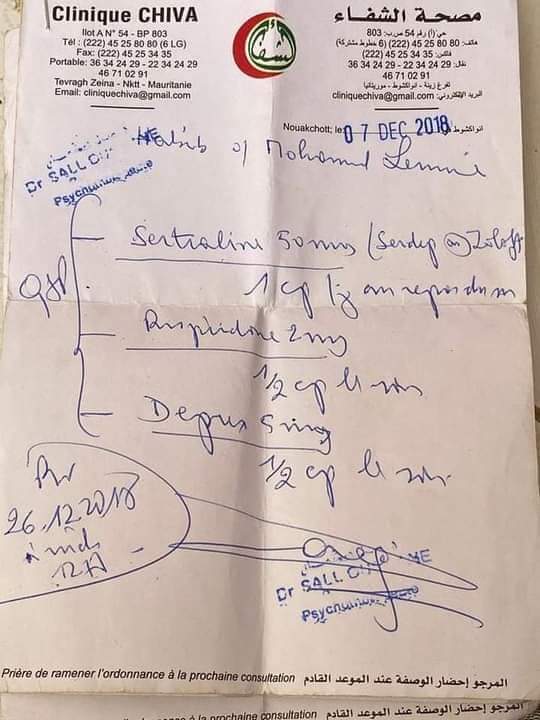 Clinique CHIVA
Ilot A N° 54 - BP 803
Tél : (222) 45 25 80 80 (6 LG)
Fax: (222) 45 25 34 35
Portable: 36 34 24 29 - 22 34 24 29
46 71 02 91
Tevragh Zeina - Nktt - Mauritanie
Email: cliniquechiva@gmail.com
مصحة الشفاء
حي (أ) رقم 54 ص.ب: 803
هاتف: 80 80 25 45 (222) (6 خطوط مشتركة)
فاكس: 35 34 25 45 (222)
نقال: 29 24 34 22 - 29 24 34 36
46 71 02 91
تفرغ زينة - انواكشوط - موريتانيا
البريد الإلكتروني: cliniquechiva@gmail.com
Nouakchott, le: 07 DEC 2018 انواكشوط
Dr SALL
Mohamed Lemine
Sertraline 50 mg (Serdep ou Zoloft
1 cp /j au repas du soir
QSP
Risperidone 2 mg
1/2 cp le soir
Depux 5 mg
1/2 cp le soir
RV
26.12.2018
12H
Dr SALL
Prière de ramener l'ordonnance à la prochaine consultation المرجو إحضار الوصفة عند الموعد القادم
à la prochaine consultation المرجو إحضار الوصفة عند الموعد القادم